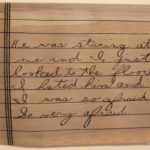 He was staring at
me and I just
looked to the floor
I hated him and
I was so afraid
So very afraid